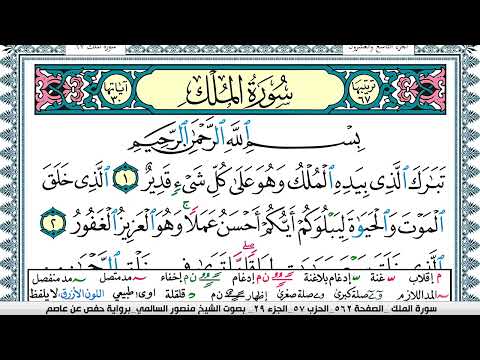 الجزء التاسع والعشرون سورة الملك ٦٧
ترتيبها ٦٧ سُورَةُ المُلْكِ آياتها ٣٠
بِسْمِ ٱللَّهِ ٱلرَّحْمَٰنِ ٱلرَّحِيمِ
تَبَٰرَكَ ٱلَّذِي بِيَدِهِ ٱلْمُلْكُ وَهُوَ عَلَىٰ كُلِّ شَيْءٍ قَدِيرٌ ١ ٱلَّذِي خَلَقَ
ٱلْمَوْتَ وَٱلْحَيَوٰةَ لِيَبْلُوَكُمْ أَيُّكُمْ أَحْسَنُ عَمَلًا ۚ وَهُوَ ٱلْعَزِيزُ ٱلْغَفُورُ ٢
م إقلاب غنة إدغام بلاغنة ن م إدغام ن م إخفاء مد متصل مد منفصل
المد اللازم صلة كبرى صلة صغرى إظهار ن م قلقلة اوى طبيعي اللون الأزرق لا يلفظ
سورة الملك _الصفحة ٥٦٢_ الحزب ٥٧_ الجزء ٢٩_ بصوت الشيخ منصور السالمي_ برواية حفص عن عاصم